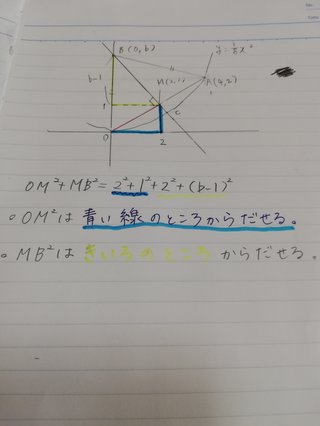 B(0,b)
y=1/8x²
b-1
M(2,1)
A(4,2)
1
C
O
2
OM²+MB²=2²+1²+2²+(b-1)²
○OM²は青い線のところからだせる。
○MB²はきいろのところからだせる。